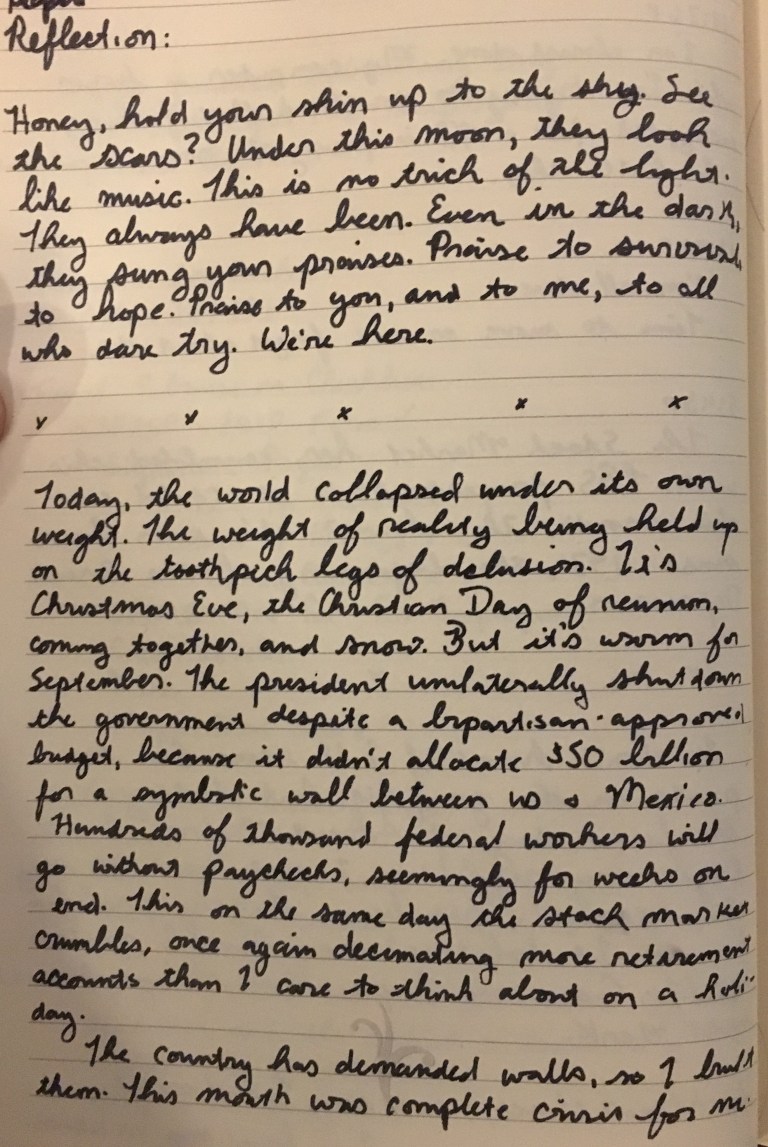 Reflection:
Honey, hold your skin up to the sky. See
the scars? Under this moon, they look
like music. This is no trick of the light.
They always have been. Even in the dark,
they sung your praises. Praise to survival,
to hope. Praise to you, and to me, to all
who dare try. We're here.
x x x x x
Today, the world collapsed under its own
weight. The weight of reality being held up
on the toothpick legs of delusion. It's
Christmas Eve, the Christian Day of reunion,
coming together, and snow. But it's warm for
September. The president unilaterally shut down
the government despite a bipartisan-approved
budget, because it didn't allocate $50 billion
for a symbolic wall between us & Mexico.
Hundreds of thousand federal workers will
go without paychecks, seemingly for weeks on
end. This on the same day the stock market
crumbles, once again decimating more retirement
accounts than I care to think about on a holi-
day.
The country has demanded walls, so I built
them. This month was complete crisis for